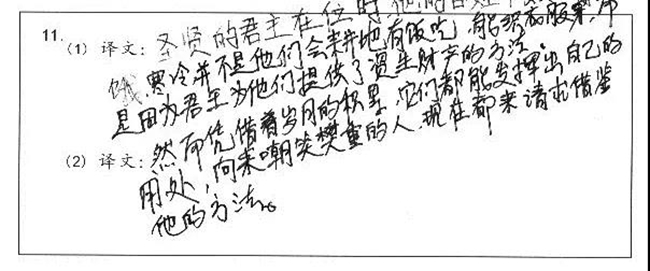 11.
(1) 译文: 圣贤的君主在位时,他的百姓不
饿寒冷并不是他们会来耕地有饭吃,能织衣服来,而
是因为君王为他们提供了资生财产的方法。
(2) 译文: 然而凭借着岁月的积累,它们都能发挥出自己的
用处,向来嘲笑樊重的人,现在都来请求借鉴
他的方法。